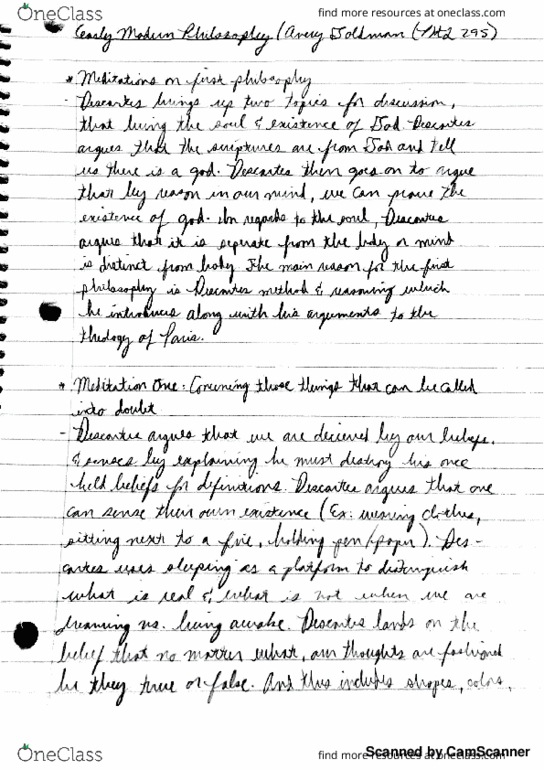 OneClass
find more resources at oneclass.com
Early Modern Philosophy (Avery Goldman (PHL 295)
* Meditations on first philosophy
- Descartes brings up two topics for discussion,
that being the soul & existence of God. Descartes
argues that the scriptures are from God and tell
us there is a god. Descartes then goes on to argue
that by reason in our mind, we can prove the
existence of god. In regards to the soul, Descartes
argues that it is seperate from the body or mind
is distinct from body. The main reason for the first
philosophy is Descartes method & reasoning which
he introduces along with his arguments to the
theology of Paris.
* Meditation One: Concerning those things that can be called
into doubt
- Descartes argues that we are decieved by our beliefs.
& senses by explaining he must destroy his once
held beliefs for definitions. Descartes argues that one
can sense their own existence (Ex: wearing clothes,
sitting next to a fire, holding pen/paper). Des-
cartes uses sleeping as a platform to distinguish
what is real & what is not when we are
dreaming vs. being awake. Descartes lands on the
belief that no matter what, our thoughts are fashioned
be they true or false. And this includes shapes, colors,
OneClass
find more resources at oneclass.com
Scanned by CamScanner